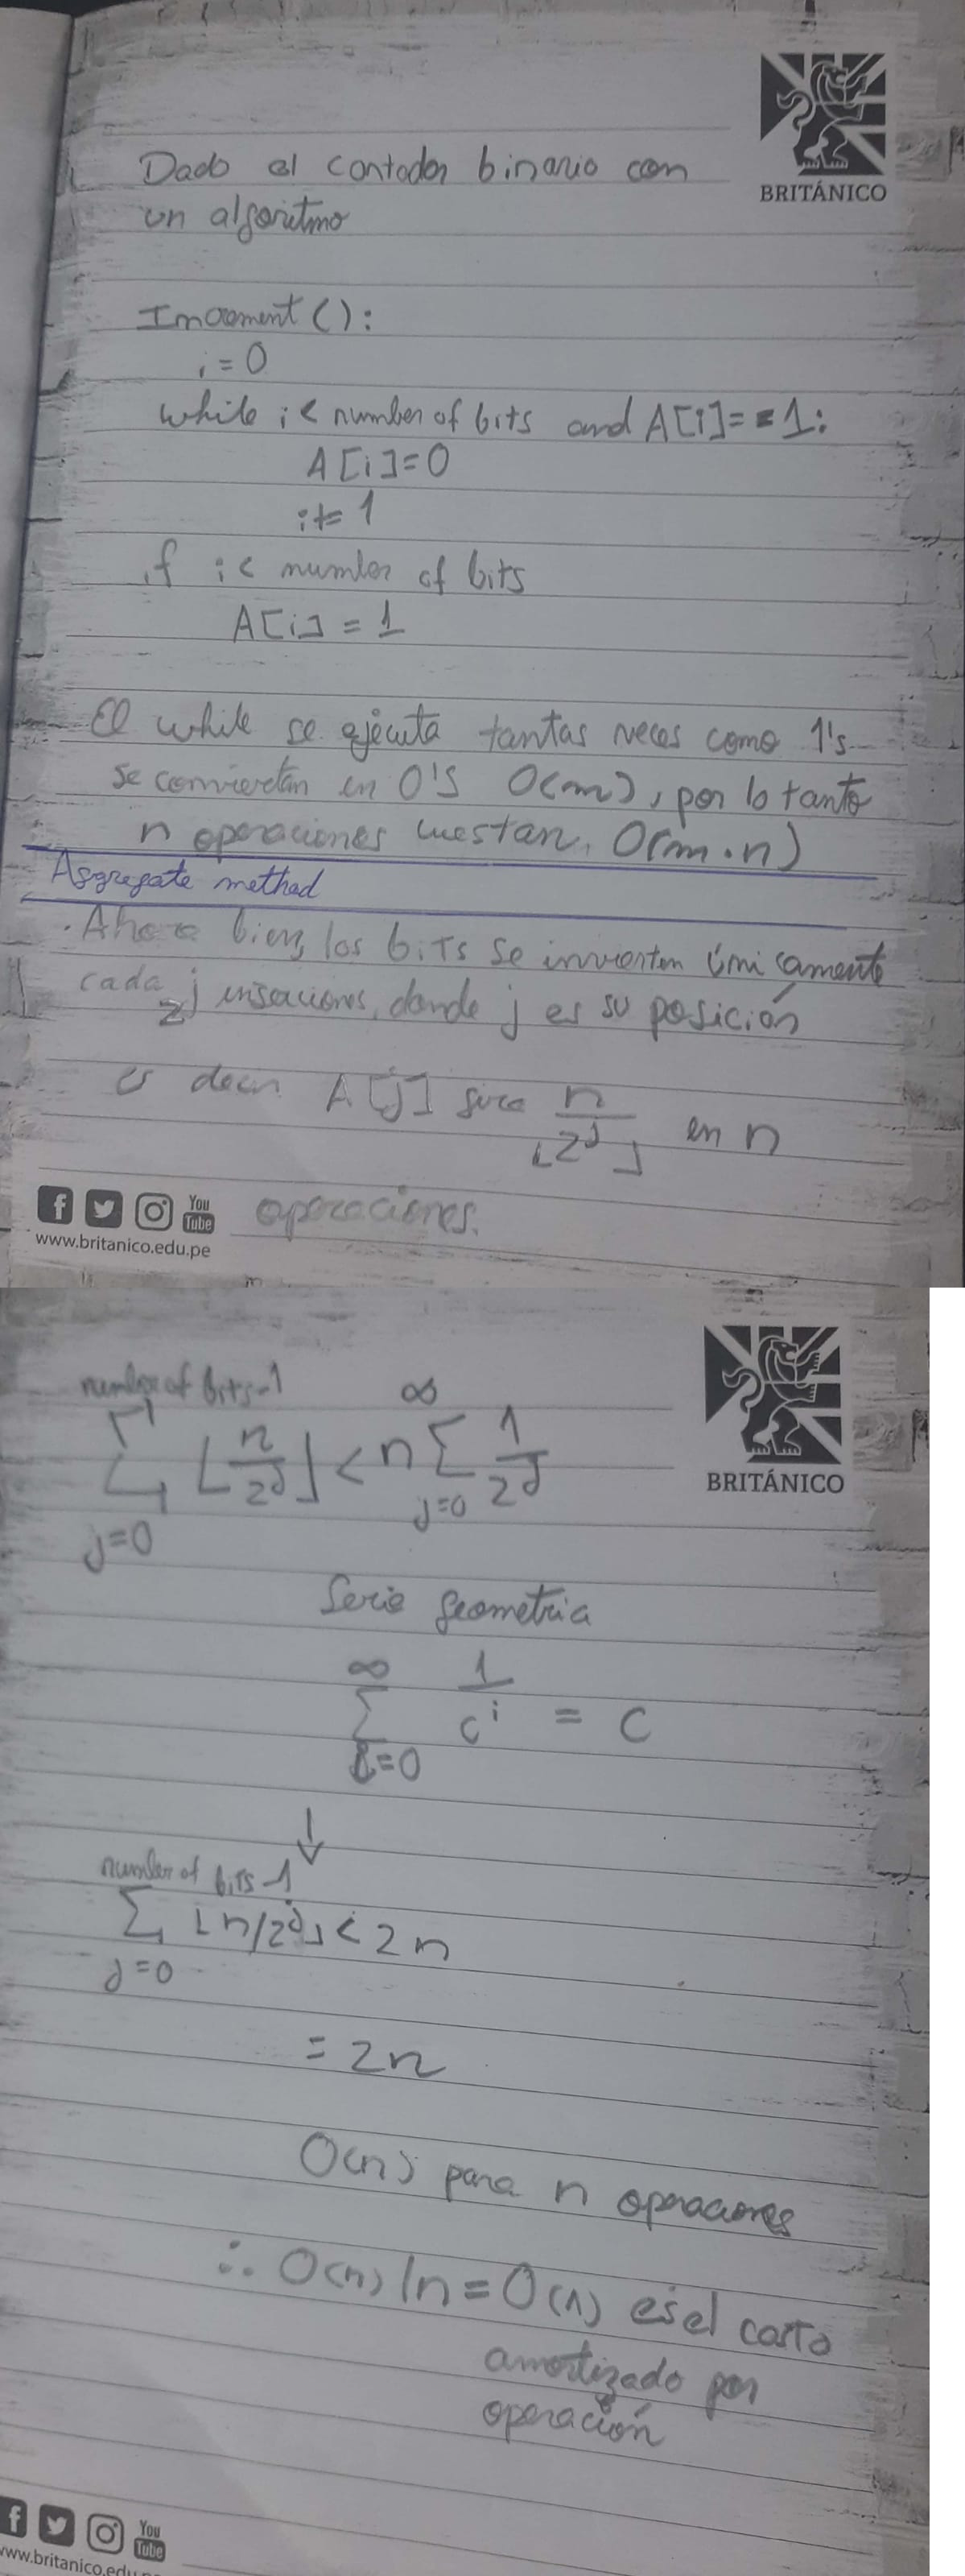 BRITÁNICO
Dado el contador binario con
un algoritmo
Increment ():
i = 0
while i < number of bits and A[i] == 1:
A[i] = 0
i += 1
if i < number of bits
A[i] = 1
El while se ejecuta tantas veces como 1's
se conviertan en 0's O(m), por lo tanto
n operaciones cuestan. O(m . n)
Aggregate method
. Ahora bien, los bits se invierten únicamente
cada 2^j inserciones, donde j es su posición
es decir A[j] n
⌊2^j⌋ en n
operaciones.
You Tube
www.britanico.edu.pe
BRITÁNICO
number of bits-1
∑ j=0 ⌊n/2^j⌋ < n ∑ j=0 ∞ 1/2^j
Serie geometria
∑ i=0 ∞ 1/c^i = c
↓
number of bits-1
∑ j=0 ⌊n/2^j⌋ < 2n
= 2n
O(n) para n operaciones
∴ O(n)/n = O(1) es el costo
amortizado por
operación
You Tube
www.britanico.edu